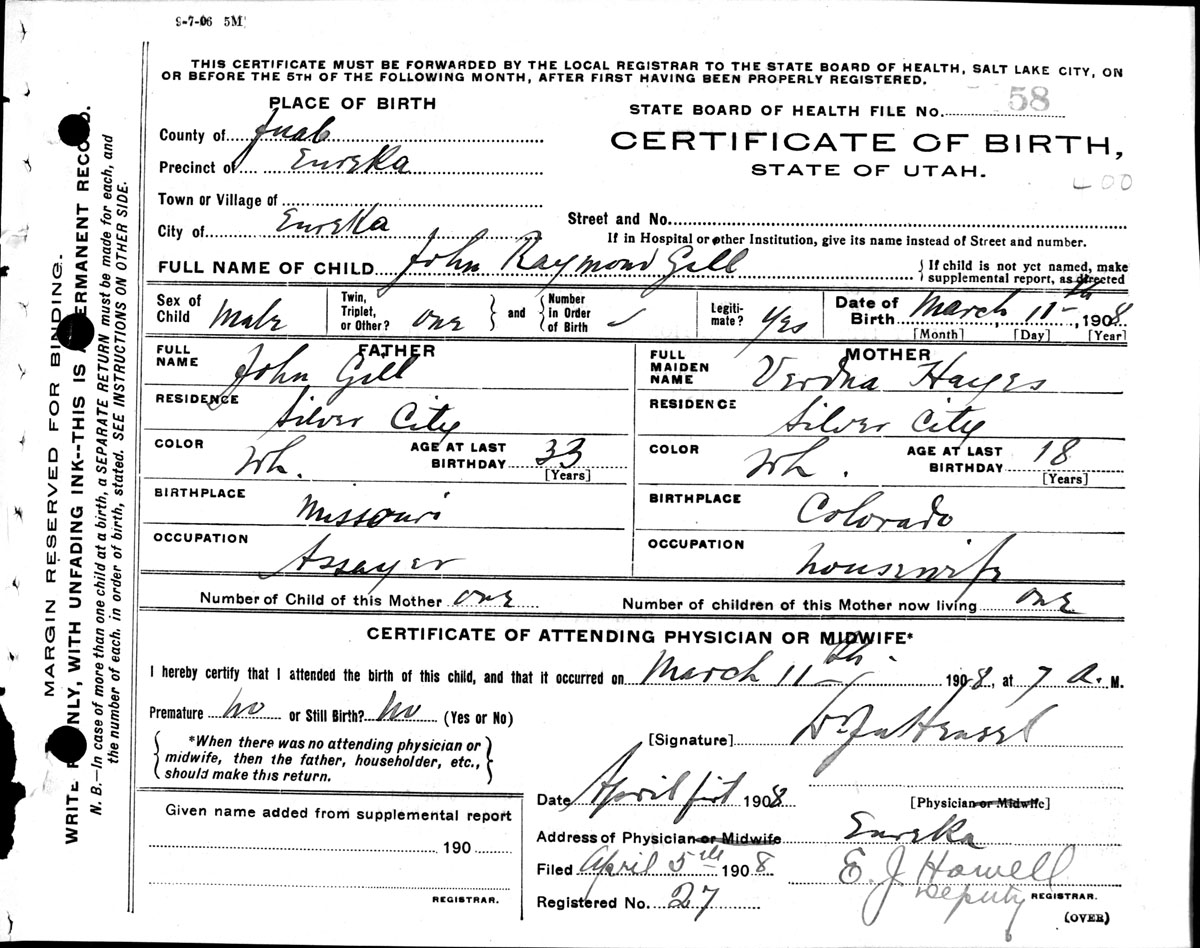 9-7-06 5M
THIS CERTIFICATE MUST BE FORWARDED BY THE LOCAL REGISTRAR TO THE STATE BOARD OF HEALTH, SALT LAKE CITY, ON
OR BEFORE THE 5TH OF THE FOLLOWING MONTH, AFTER FIRST HAVING BEEN PROPERLY REGISTERED.
PLACE OF BIRTH
STATE BOARD OF HEALTH FILE No. 58
County of Juab
CERTIFICATE OF BIRTH,
Precinct of Eureka
STATE OF UTAH.
Town or Village of
City of Eureka
Street and No.
If in Hospital or other Institution, give its name instead of Street and number.
FULL NAME OF CHILD John Raymond Gill
{ If child is not yet named, make
supplemental report, as directed
Sex of Child Male
Twin, Triplet, or Other? one } and { Number in Order of Birth ✓
Legitimate? Yes
Date of Birth March 11th, 1908
[Month] [Day] [Year]
FATHER
FULL NAME John Gill
RESIDENCE Silver City
COLOR Wh. AGE AT LAST BIRTHDAY 33
[Years]
BIRTHPLACE Missouri
OCCUPATION Assayer
MOTHER
FULL MAIDEN NAME Verdna Hayes
RESIDENCE Silver City
COLOR Wh. AGE AT LAST BIRTHDAY 18
[Years]
BIRTHPLACE Colorado
OCCUPATION housewife
Number of Child of this Mother one Number of children of this Mother now living one
CERTIFICATE OF ATTENDING PHYSICIAN OR MIDWIFE*
I hereby certify that I attended the birth of this child, and that it occurred on March 11th 1908, at 7 A. M.
Premature No or Still Birth? No (Yes or No)
*When there was no attending physician or
midwife, then the father, householder, etc.,
should make this return.
[Signature]
Date April first 1908
[Physician or Midwife]
Given name added from supplemental report
190
REGISTRAR.
Address of Physician or Midwife Eureka
Filed April 5th 1908 E. J. Howell
Deputy REGISTRAR.
Registered No. 27
(OVER)
MARGIN RESERVED FOR BINDING.
WRITE ONLY, WITH UNFADING INK--THIS IS PERMANENT RECORD.
N. B.—In case of more than one child at a birth, a SEPARATE RETURN must be made for each, and
the number of each, in order of birth, stated. SEE INSTRUCTIONS ON OTHER SIDE.